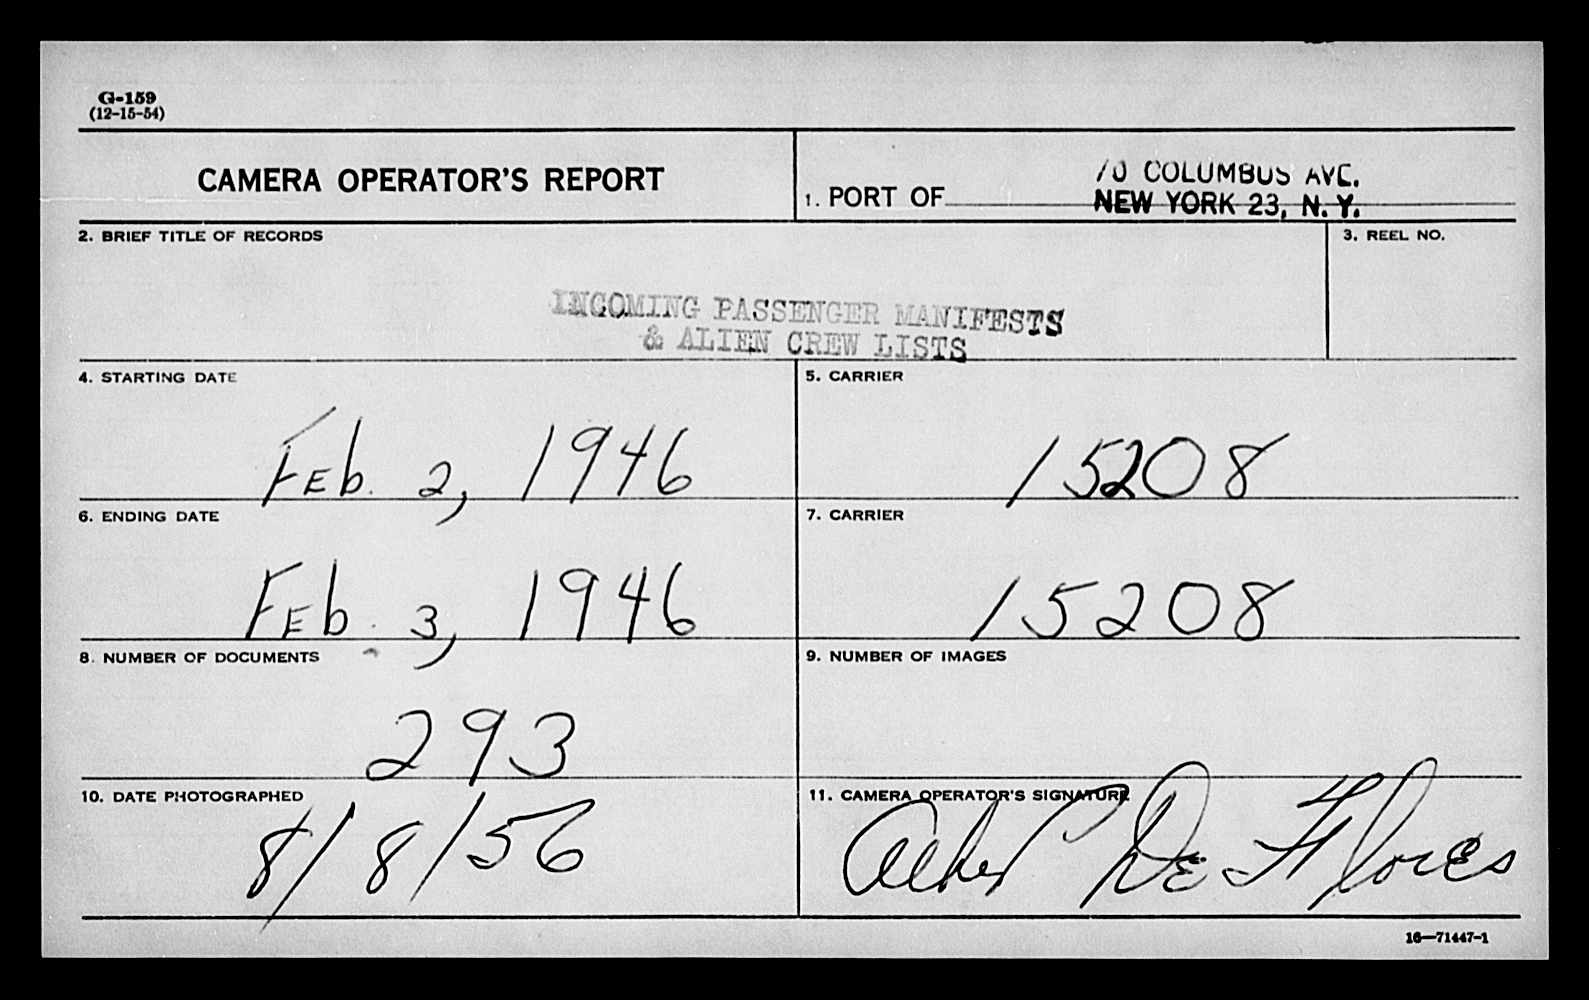 G-159
(12-15-54)
CAMERA OPERATOR'S REPORT
1. PORT OF
70 COLUMBUS AVE.
NEW YORK 23, N. Y.
2. BRIEF TITLE OF RECORDS
3. REEL NO.
INCOMING PASSENGER MANIFESTS
& ALIEN CREW LISTS
4. STARTING DATE
5. CARRIER
Feb. 2, 1946
15208
6. ENDING DATE
7. CARRIER
Feb. 3, 1946
15208
8. NUMBER OF DOCUMENTS
9. NUMBER OF IMAGES
293
10. DATE PHOTOGRAPHED
11. CAMERA OPERATOR'S SIGNATURE
8/8/56
Albert De Flores
16—71447-1